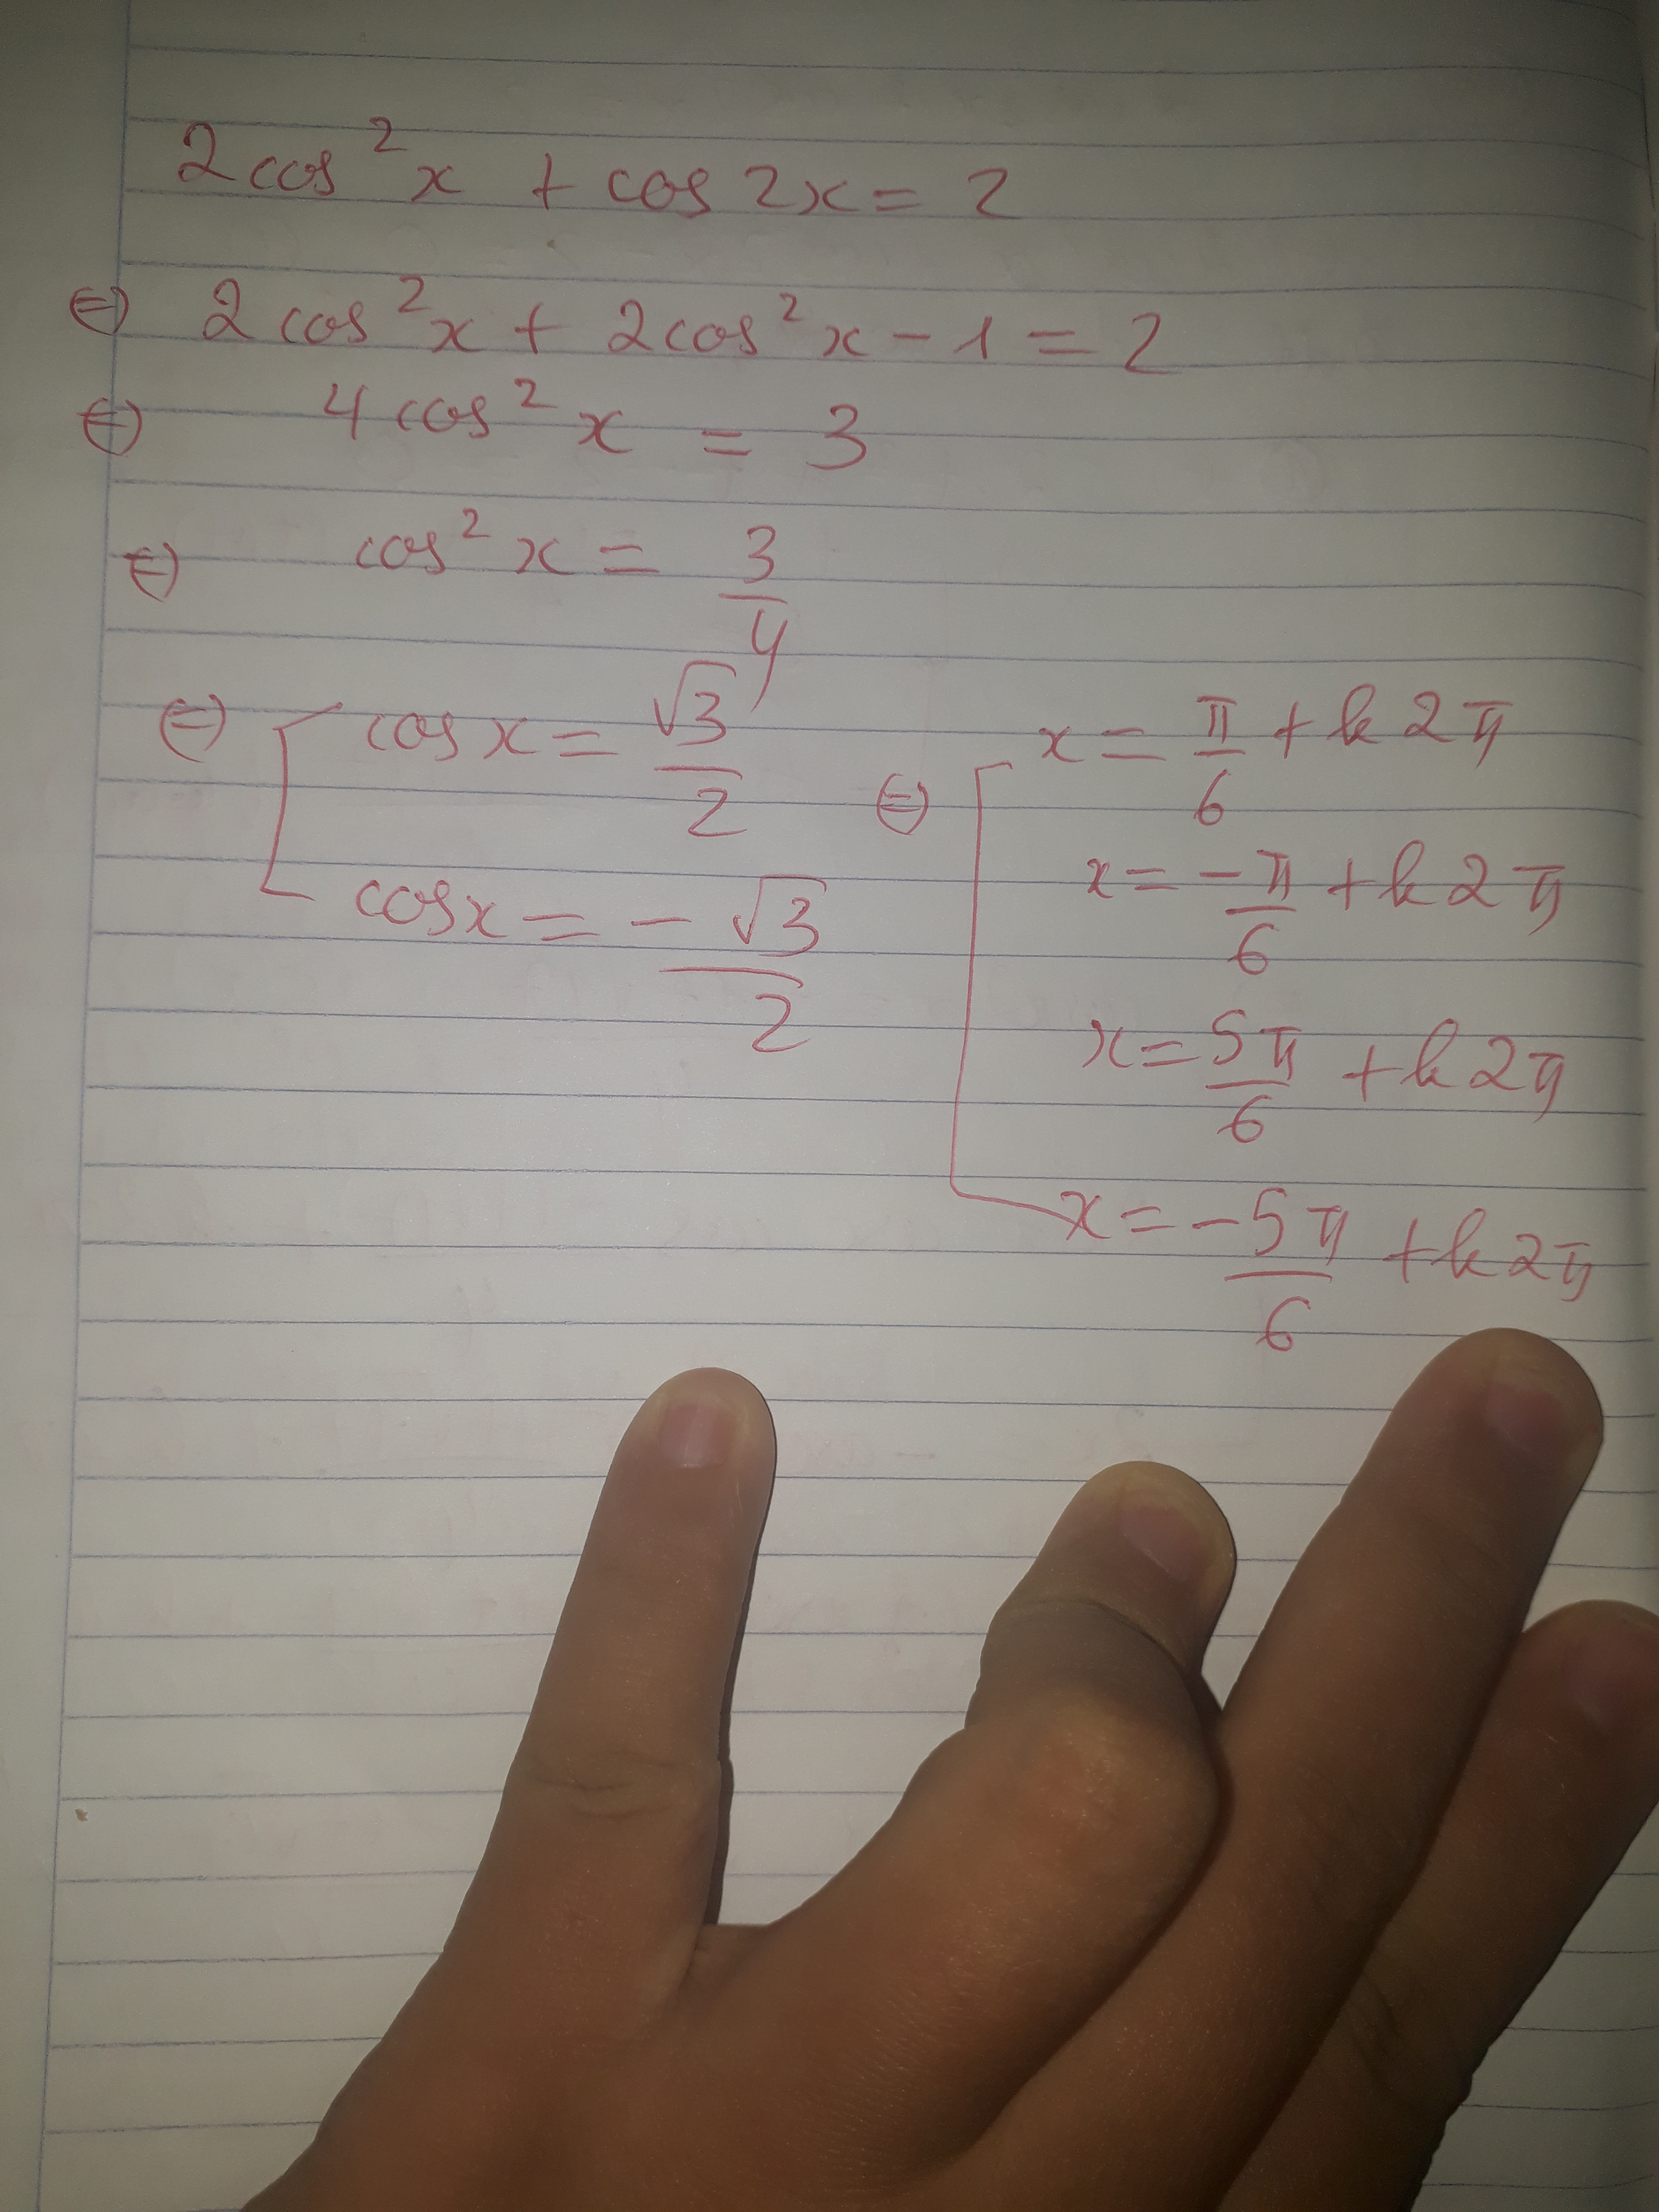 2cos²x + cos2x = 2
⇔ 2cos²x + 2cos²x - 1 = 2
⇔ 4cos²x = 3
⇔ cos²x = 3/4
⇔ [ cosx = √3/2 ⇔ [ x = π/6 + k2π
x = -π/6 + k2π
cosx = -√3/2
x = 5π/6 + k2π
x = -5π/6 + k2π